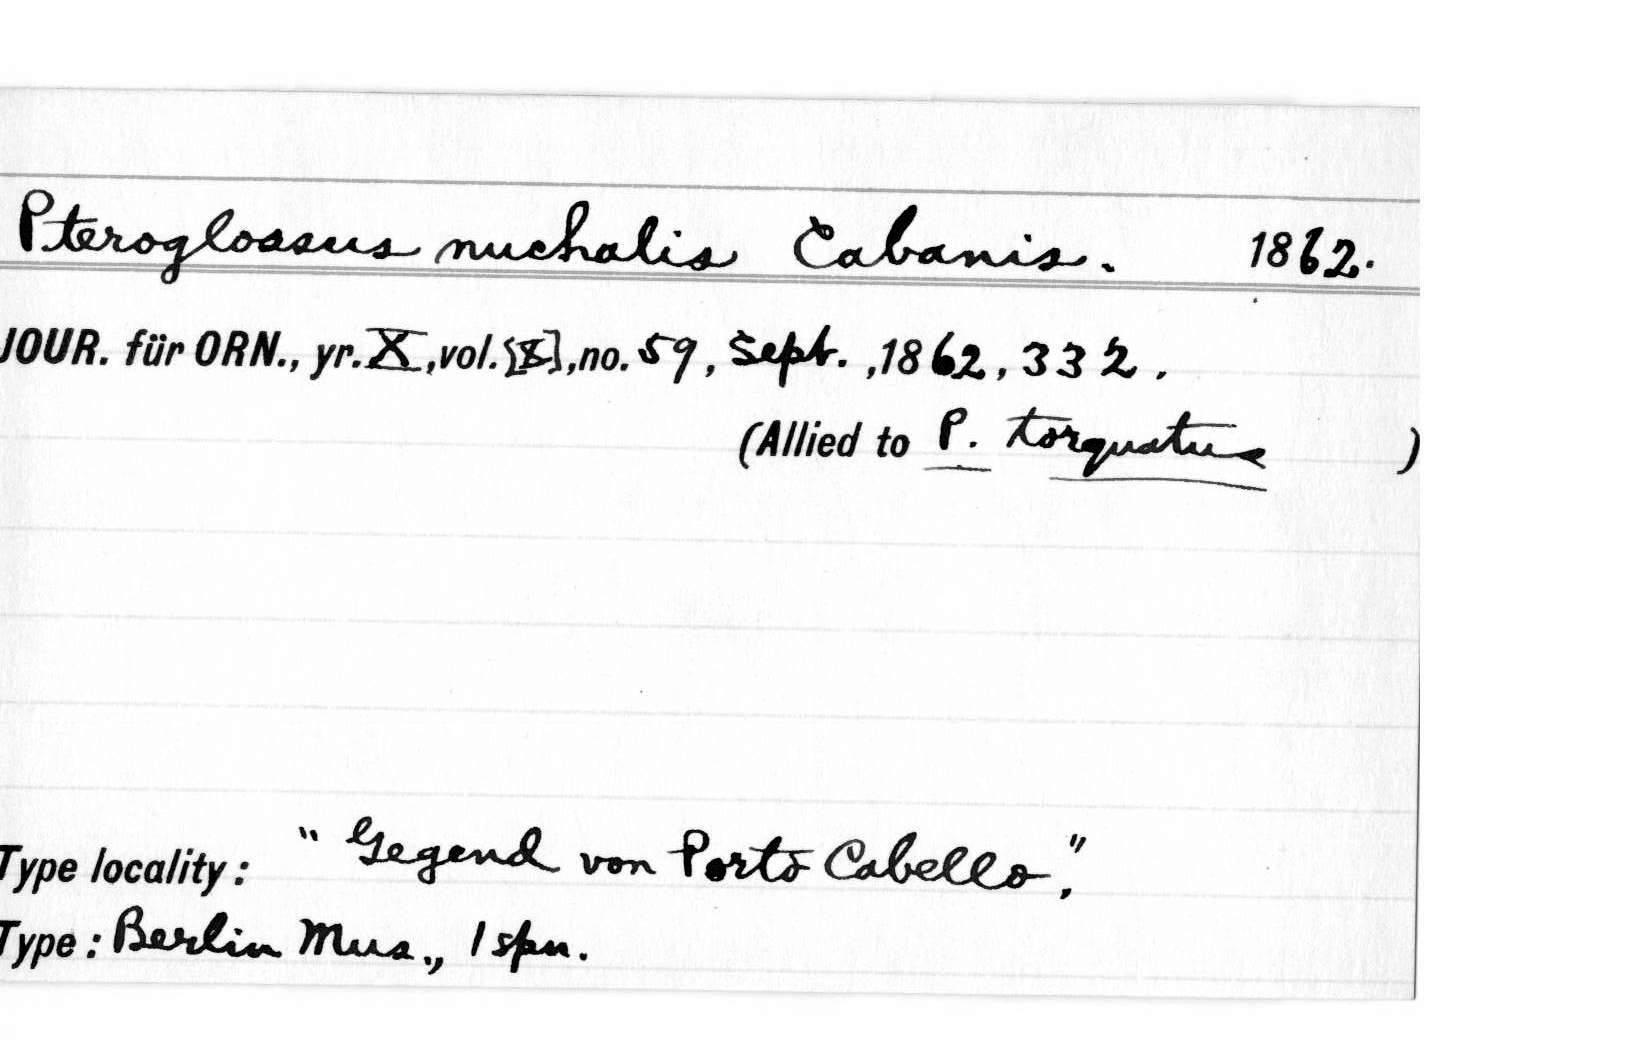 Pteroglossus nuchalis Cabanis. 1862.
JOUR. für ORN., yr. X, vol. [X], no. 59, Sept. ,1862, 332.
(Allied to P. torquatus )
Type locality: "Gegend von Porto Cabello,"
Type: Berlin Mus., 1 spn.